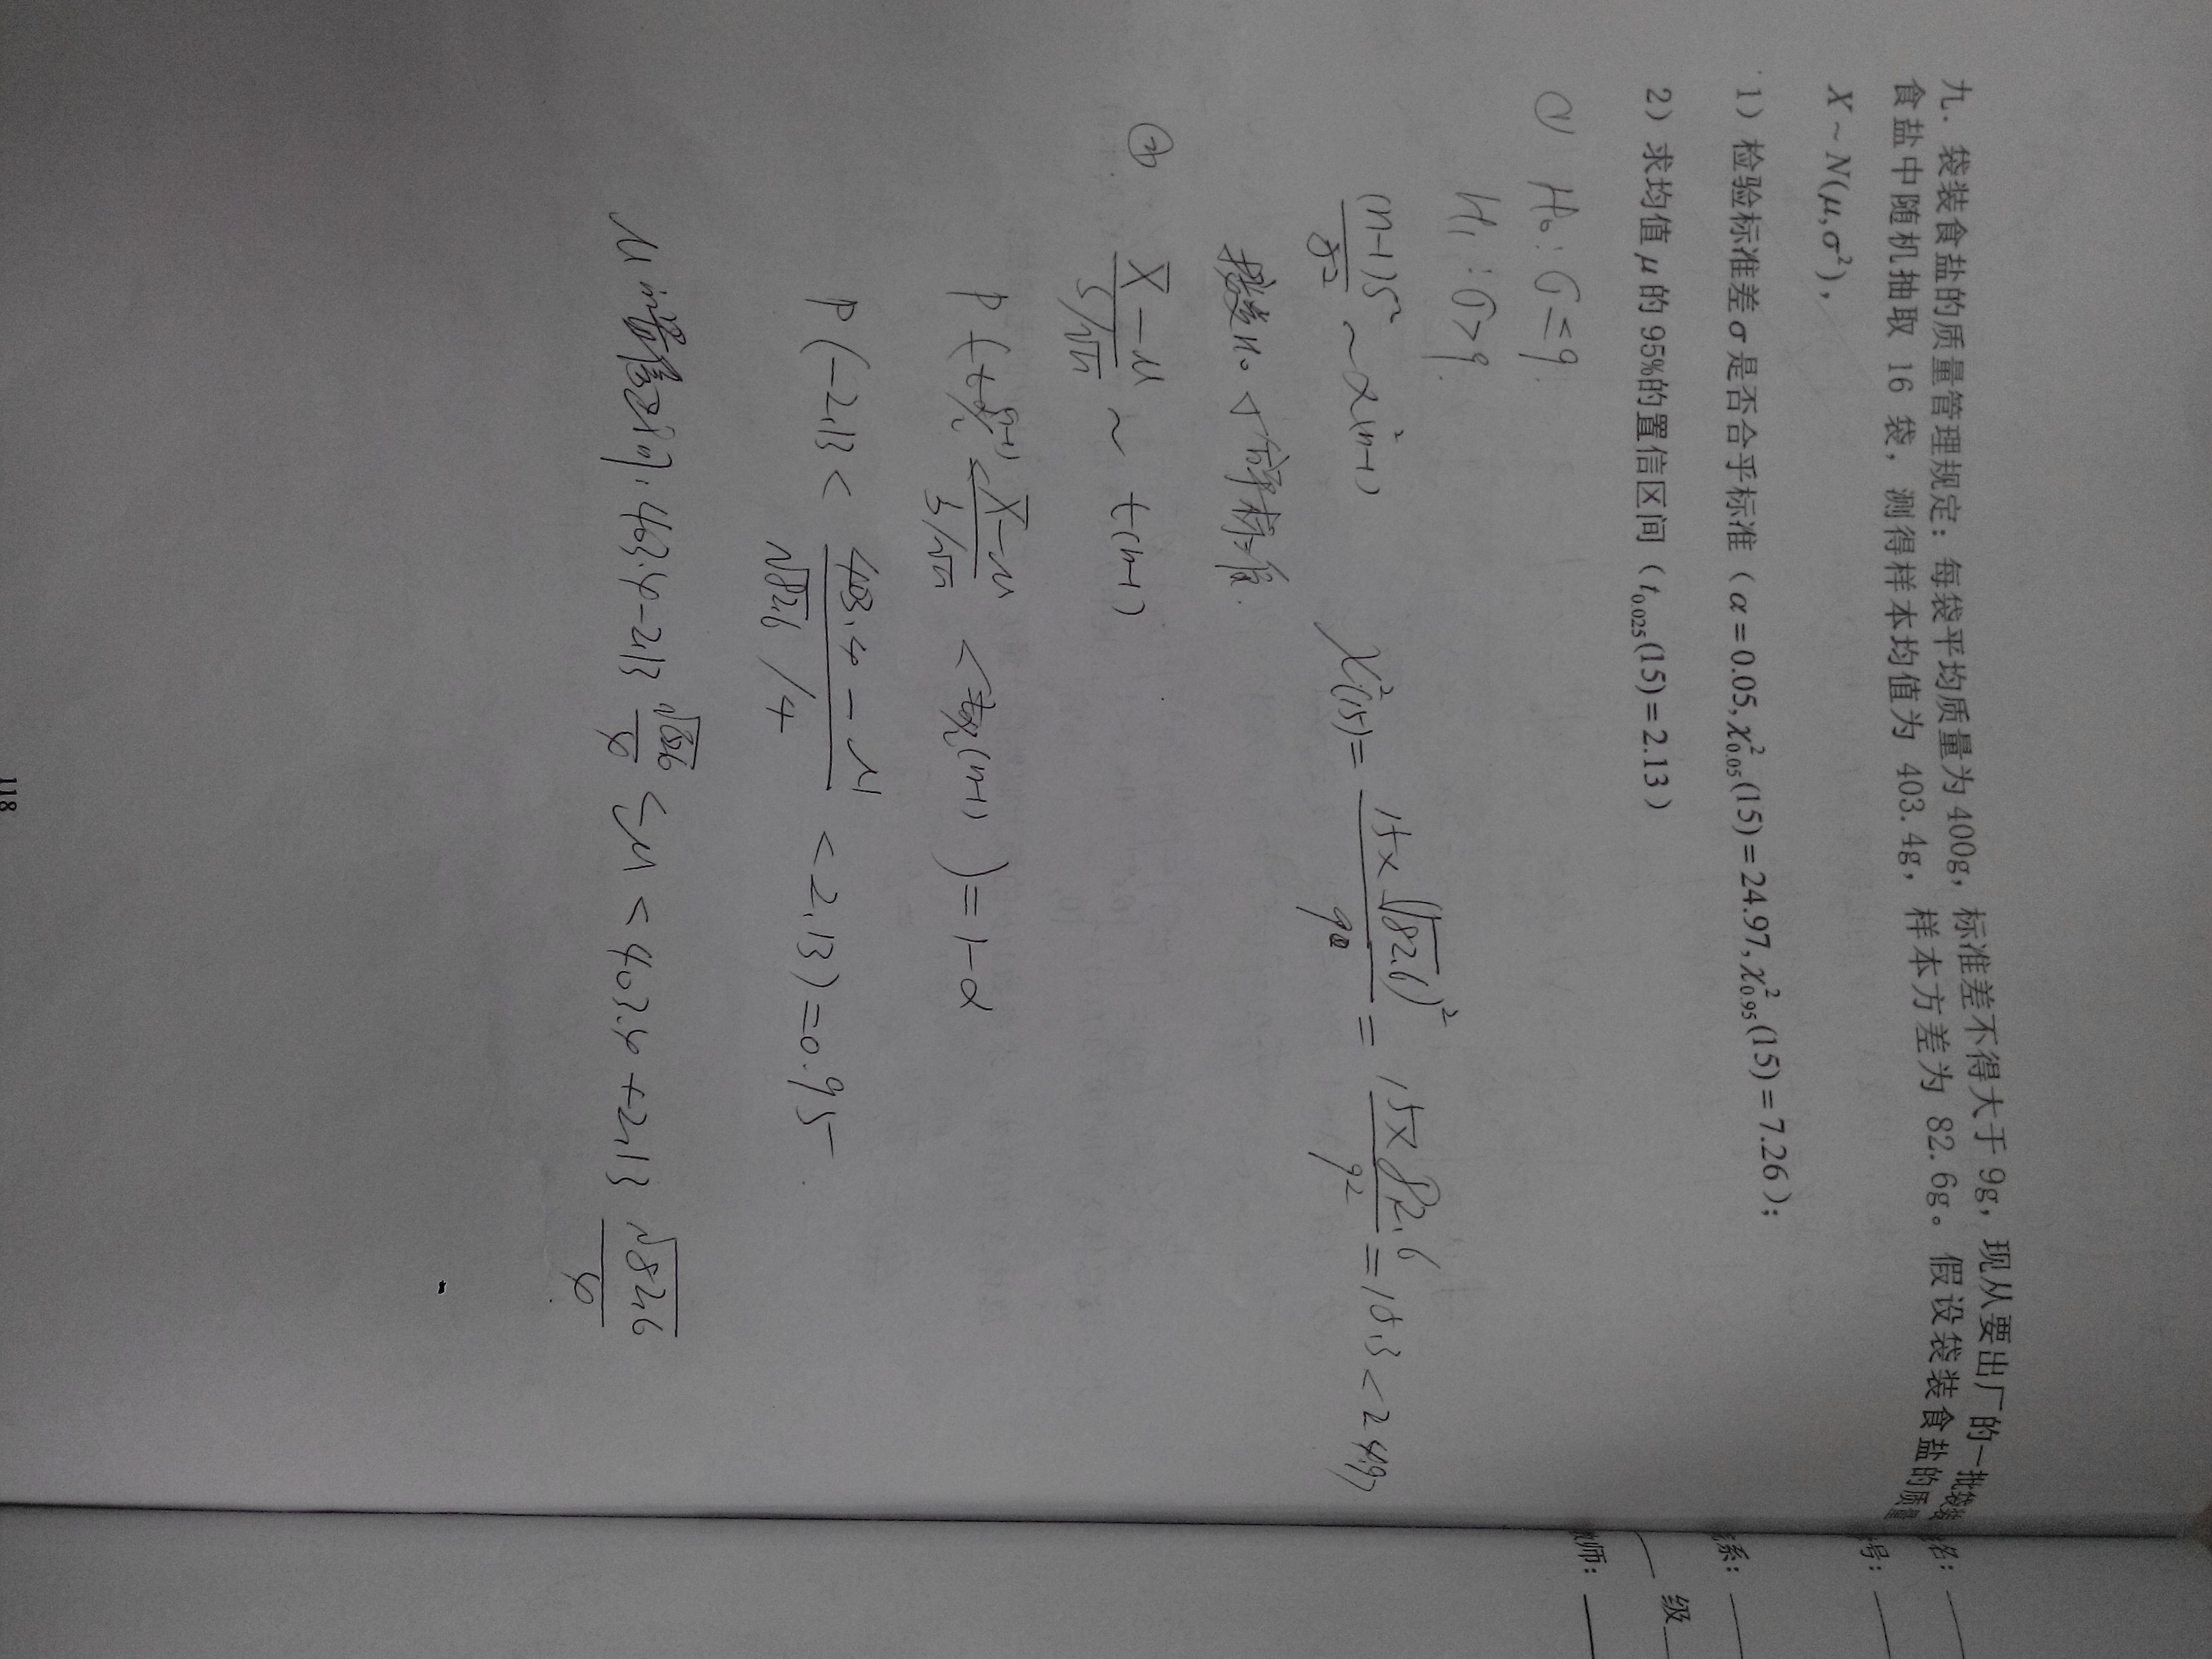 九. 袋装食盐的质量管理规定：每袋平均质量为 400g, 标准差不得大于 9g, 现从要出厂的一批袋装
食盐中随机抽取 16 袋, 测得样本均值为 403.4g, 样本方差为 82.6g。假设袋装食盐的质量
X~N(μ,σ²),
1) 检验标准差σ是否合乎标准（α=0.05, χ²₀.₀₅(15)=24.97, χ²₀.₉₅(15)=7.26）;
2) 求均值μ的95%的置信区间（t₀.₀₂₅(15)=2.13）
H₀: σ=9.
H₁: σ>9.
(n-1)S²/σ² ~ χ²(n-1) χ²(15)= 15×(√82.6)²/9² = 15×82.6/9² = 15.3<24.97
接受H₀
② X̄-μ / S/√n ~ t(n-1)
P(-tα/2(n-1) < X̄-μ / S/√n < tα/2(n-1))=1-α
P(-2.13 < 403.4-μ / √82.6/4 < 2.13)=0.95
μ 403.4-2.13 √82.6/4 <μ< 403.4+2.13 √82.6/4
118
名:
号:
系:
级
教师: